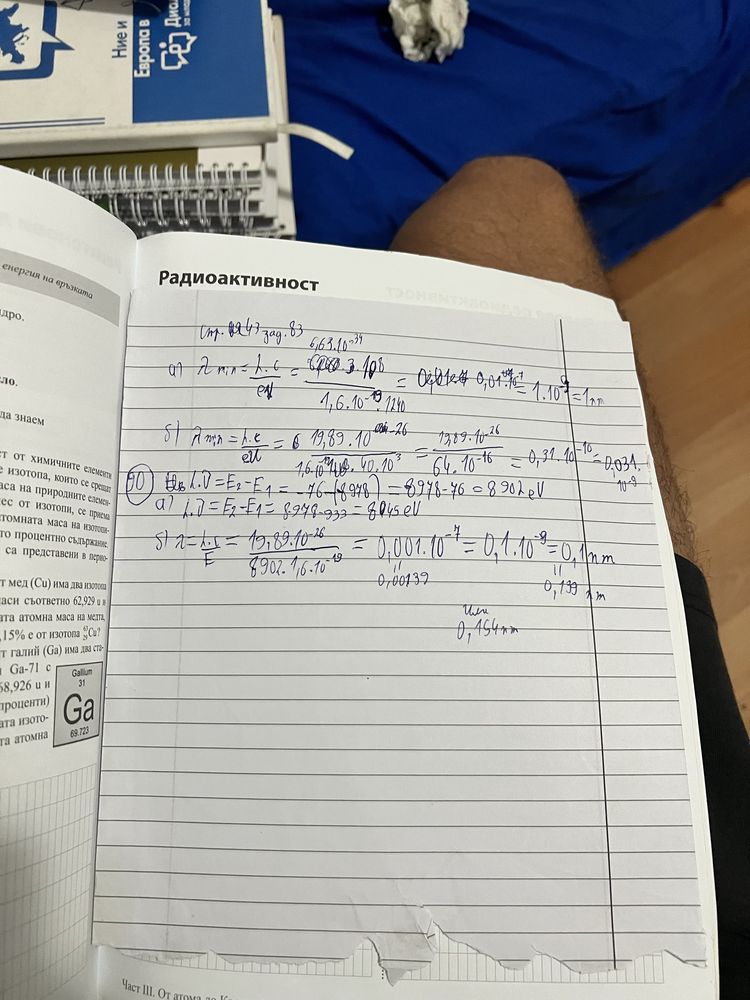 Ние и
Европа в
Диал
енергия на връзката
ядро.
Радиоактивност
стр. 43 зад. 83
6,63.10⁻³⁴
а) λ min = h.c / eU = 3.10⁸ / 1,6.10⁻¹⁹.1240 = 0,01.10⁻⁷ = 1.10⁻⁹ = 1nm
б) λ min = h.c / eU = 19,89.10⁻²⁶ / 1,6.10⁻¹⁹.40.10³ = 19,89.10⁻²⁶ / 64.10⁻¹⁶ = 0,31.10⁻¹⁰ = 0,031.
10⁻⁹
90 h.ν = E₂-E₁ = -76-(-8978) = 8978-76 = 8902eV
а) h.ν = E₂-E₁ = 8978-933 = 8045eV
б) λ = h.c / E = 19,89.10⁻²⁶ / 8902.1,6.10⁻¹⁹ = 0,001.10⁻⁷ = 0,1.10⁻⁹ = 0,1nm
0,00139
0,139 nm
или
0,154nm
да знаем
ст от химичните елементи
е изотопа, които се срещат
аса на природните елемен-
ес от изотопи, се приема
атомната маса на изотопи-
то процентно съдържание.
са представени в перио-
т мед (Cu) има два изотопа
аси съответно 62,929 u и
ата атомна маса на медта,
,15% е от изотопа ⁶³₂₉Cu?
т галий (Ga) има два ста-
и Ga-71 с
68,926 u и
проценти)
ата изото-
та атомна
Gallium
31
Ga
69.723
Част III. От атома до